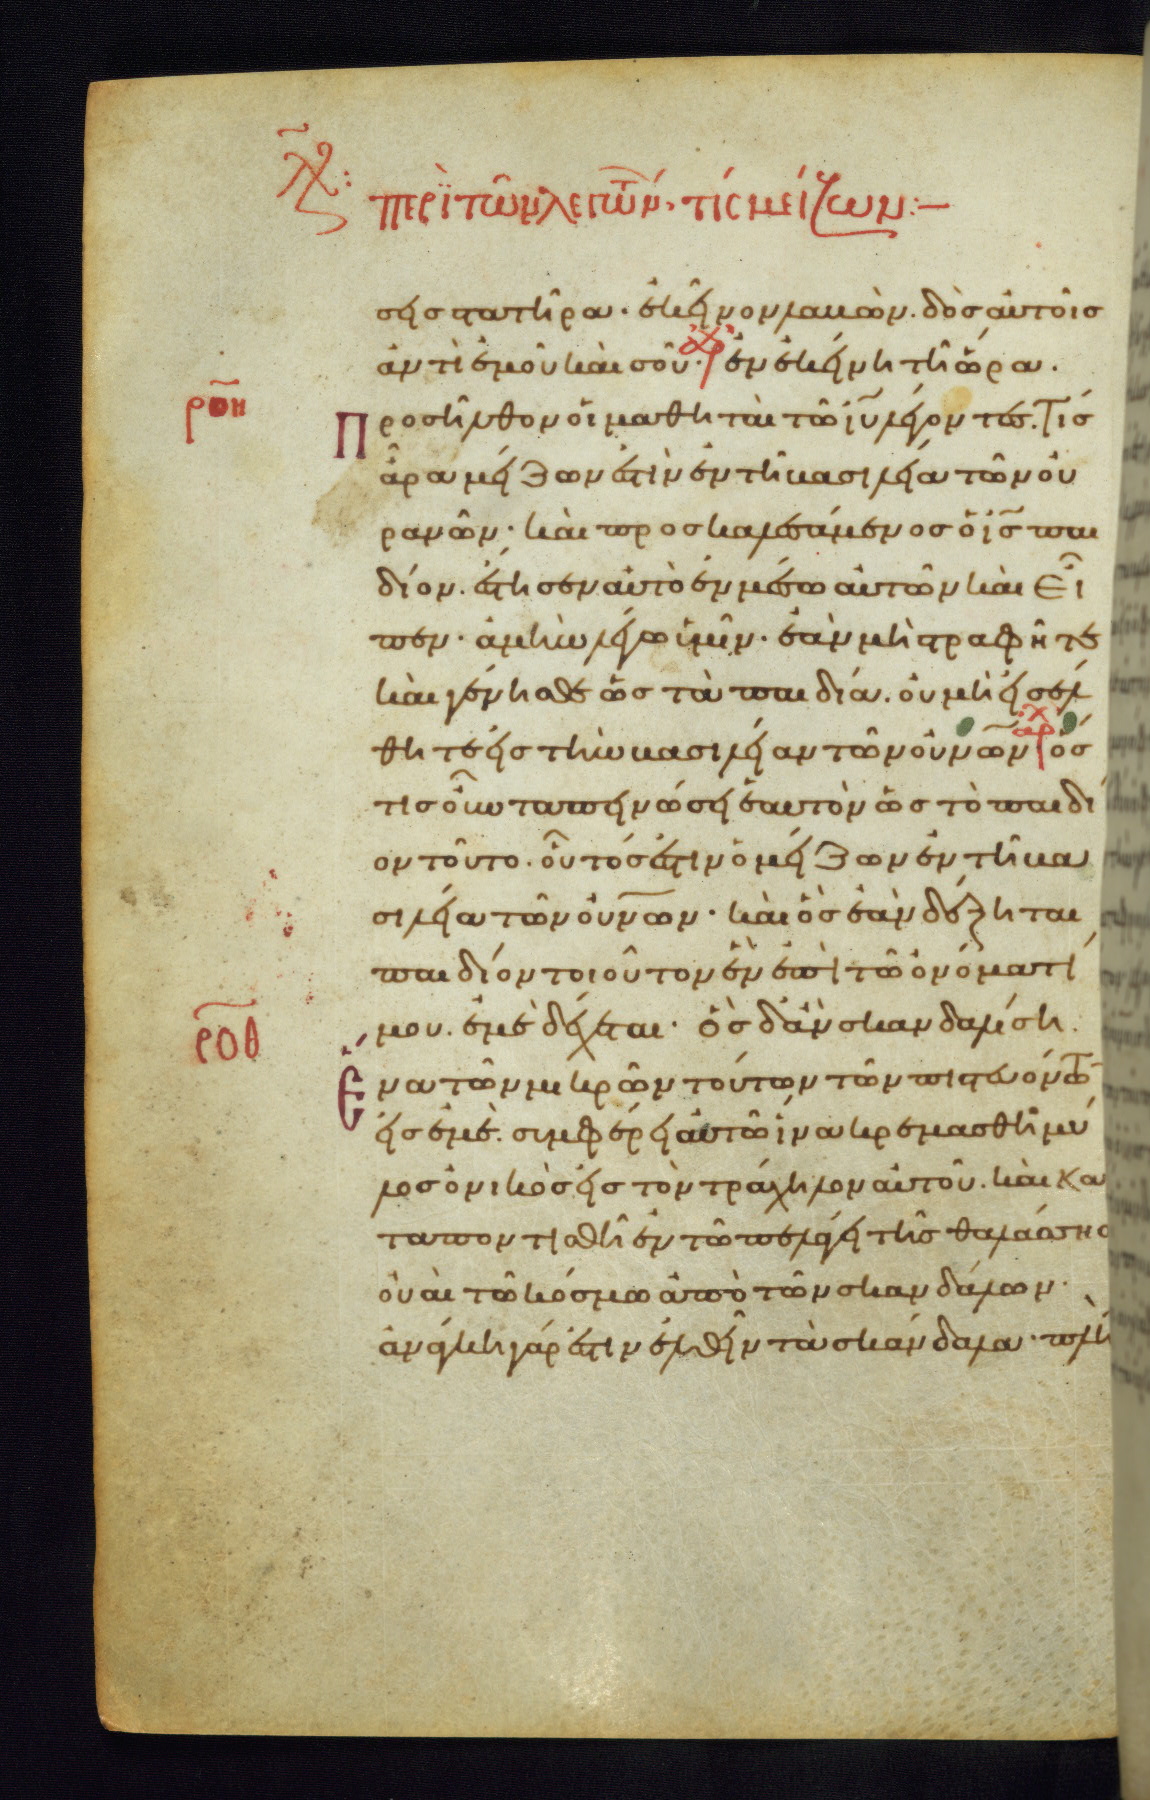 περὶ τῶν λεγόντων· τίς μείζων:—
σεις στατῆρα· ἐκεῖνον λαβὼν. δὸς αὐτοῖς
ἀντὶ ἐμοῦ καὶ σοῦ· ἐν ἐκείνη τῆ ὥρα.
ροη
Προσῆλθον οἱ μαθηταὶ τῶ ιῡ λέγοντες. Τίς
ἄρα μείζων ἐστὶν ἐν τῆ βασιλεία τῶν οὐ
ρανῶν· καὶ προσκαλεσάμενος ὁ ις̄ παι
δίον. ἔστησεν αὐτὸ ἐν μέσω αὐτῶν καὶ εἶ
πεν· ἀμὴν λέγω ὑμῖν· ἐὰν μὴ στραφῆτε
καὶ γένησθε ὡς τὰ παιδία. οὐ μὴ εἰσέλ
θητε εἰς τὴν βασιλείαν τῶν οὐνῶν ὅς
τις οὖν ταπεινώσει ἑαυτὸν ὡς τὸ παιδί
ον τοῦτο. οὗτός ἐστιν ὁ μείζων ἐν τῆ βα
σιλεία τῶν οὐνῶν· καὶ ὃς ἐὰν δέξηται
παιδίον τοιοῦτον ἓν ἐπὶ τῶ ὀνόματί
μου. ἐμὲ δέχεται· ὃς δ' ἂν σκανδαλίση.
ροθ
Ἕνα τῶν μικρῶν τούτων τῶν πιστευόντων
εἰς ἐμὲ. συμφέρει αὐτῶ ἵνα κρεμασθῆ μύ
λος ὀνικὸς εἰς τὸν τράχηλον αὐτοῦ. καὶ κα
ταποντισθῆ ἐν τῶ πελάγει τῆς θαλάσσης
οὐαὶ τῶ κόσμω ἀπὸ τῶν σκανδάλων·
ἀνάγκη γάρ ἐστιν ἐλθεῖν τὰ σκάνδαλα· πλὴ